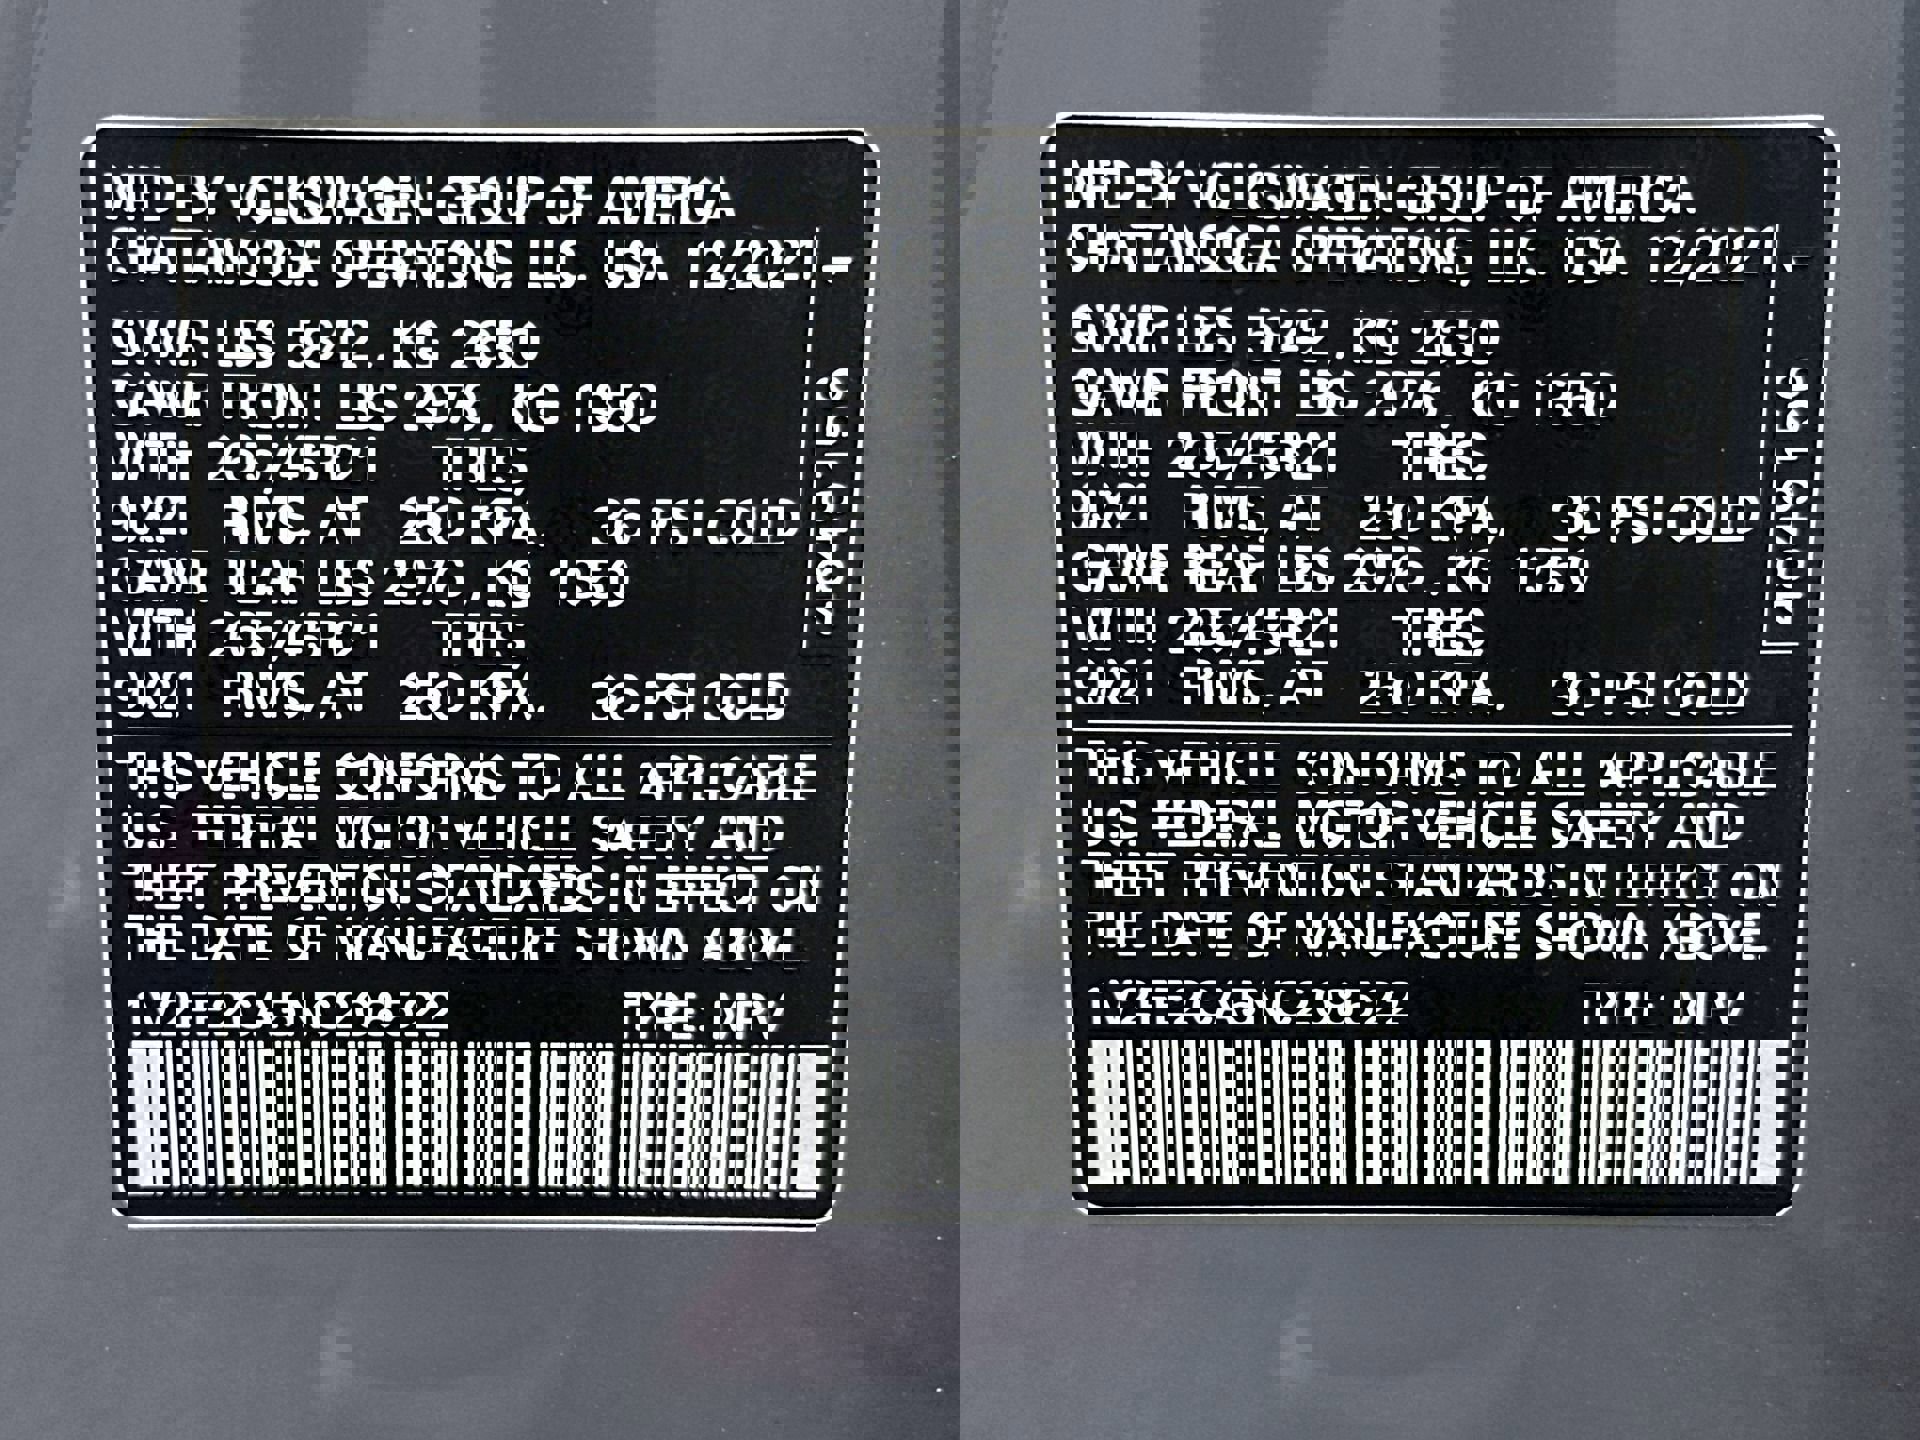 MFD BY VOLKSWAGEN GROUP OF AMERICA
CHATTANOOGA OPERATIONS, LLC. USA 12/2021
GVWR LBS 5842, KG 2650
GAWR FRONT LBS 2976, KG 1350
WITH 265/45R21 TIRES,
RIMS, AT 250 KPA, 36 PSI COLD
GAWR REAR LBS 2976, KG 1350
WITH 265/45R21 TIRES,
RIMS, AT 250 KPA, 36 PSI COLD
THIS VEHICLE CONFORMS TO ALL APPLICABLE
U.S. FEDERAL MOTOR VEHICLE SAFETY AND
THEFT PREVENTION STANDARDS IN EFFECT ON
THE DATE OF MANUFACTURE SHOWN ABOVE.
TYPE: MPV
MFD BY VOLKSWAGEN GROUP OF AMERICA
CHATTANOOGA OPERATIONS, LLC. USA 12/2021
GVWR LBS 5842, KG 2650
GAWR FRONT LBS 2976, KG 1350
WITH 265/45R21 TIRES,
RIMS, AT 250 KPA, 36 PSI COLD
GAWR REAR LBS 2976, KG 1350
WITH 265/45R21 TIRES,
RIMS, AT 250 KPA, 36 PSI COLD
THIS VEHICLE CONFORMS TO ALL APPLICABLE
U.S. FEDERAL MOTOR VEHICLE SAFETY AND
THEFT PREVENTION STANDARDS IN EFFECT ON
THE DATE OF MANUFACTURE SHOWN ABOVE.
TYPE: MPV